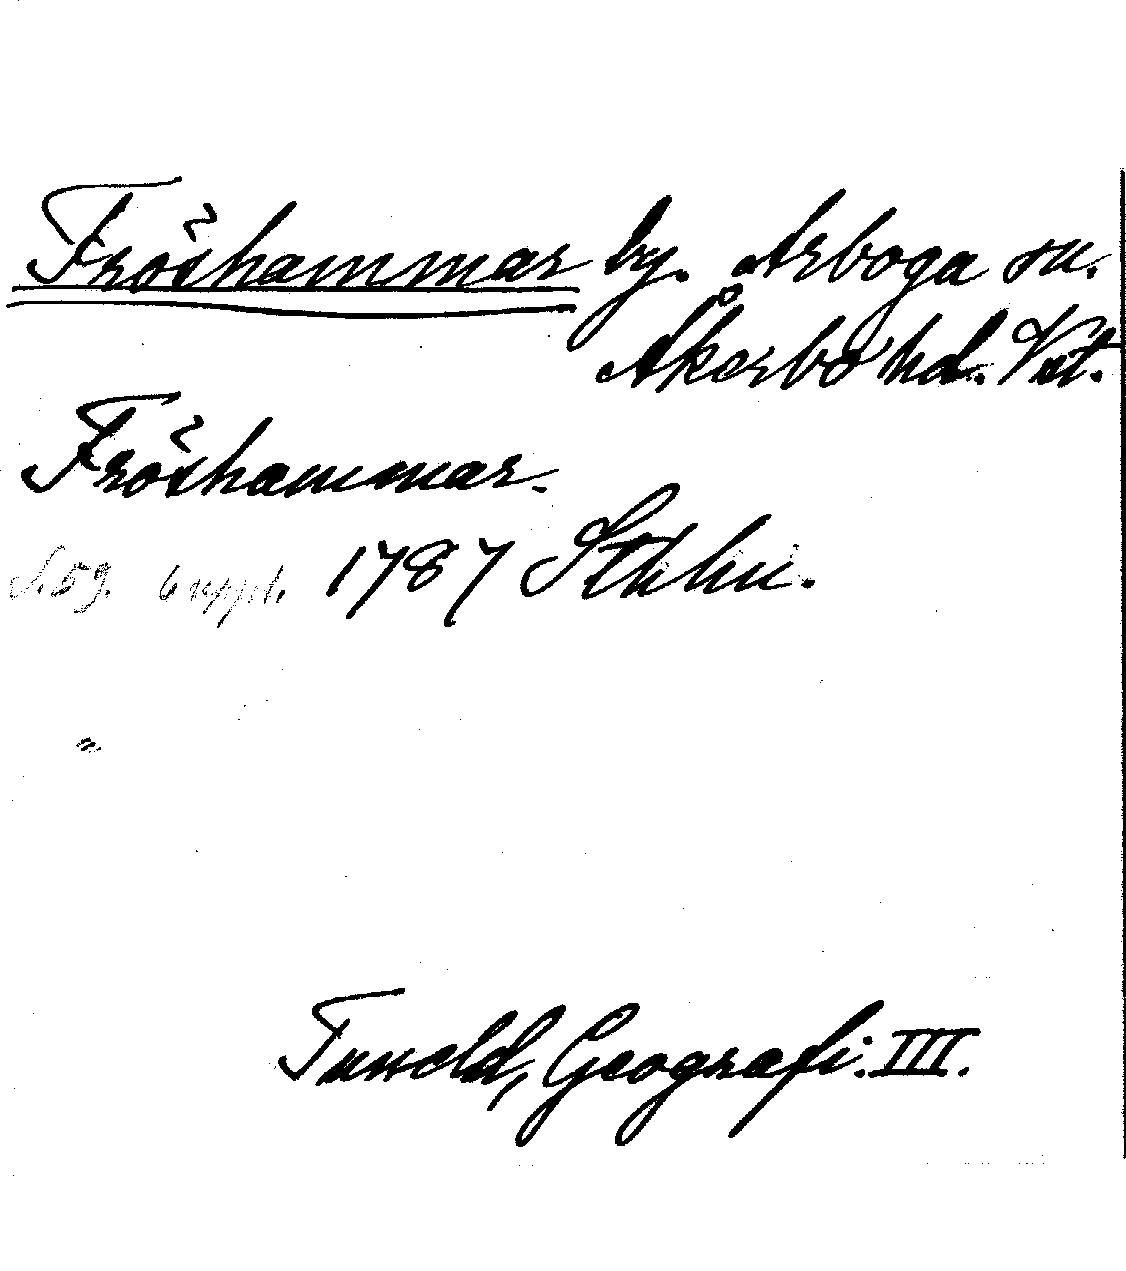 Fröshammar by. Arboga sn.
Åkerbo hd. Vstm.
Fröshammar.
S. 59. 6 uppl. 1787 Sthlm.
Tuneld, Geografi. III.